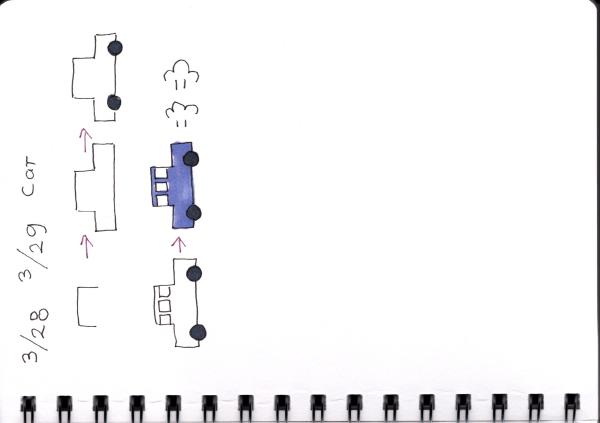 3/28 3/29 Car